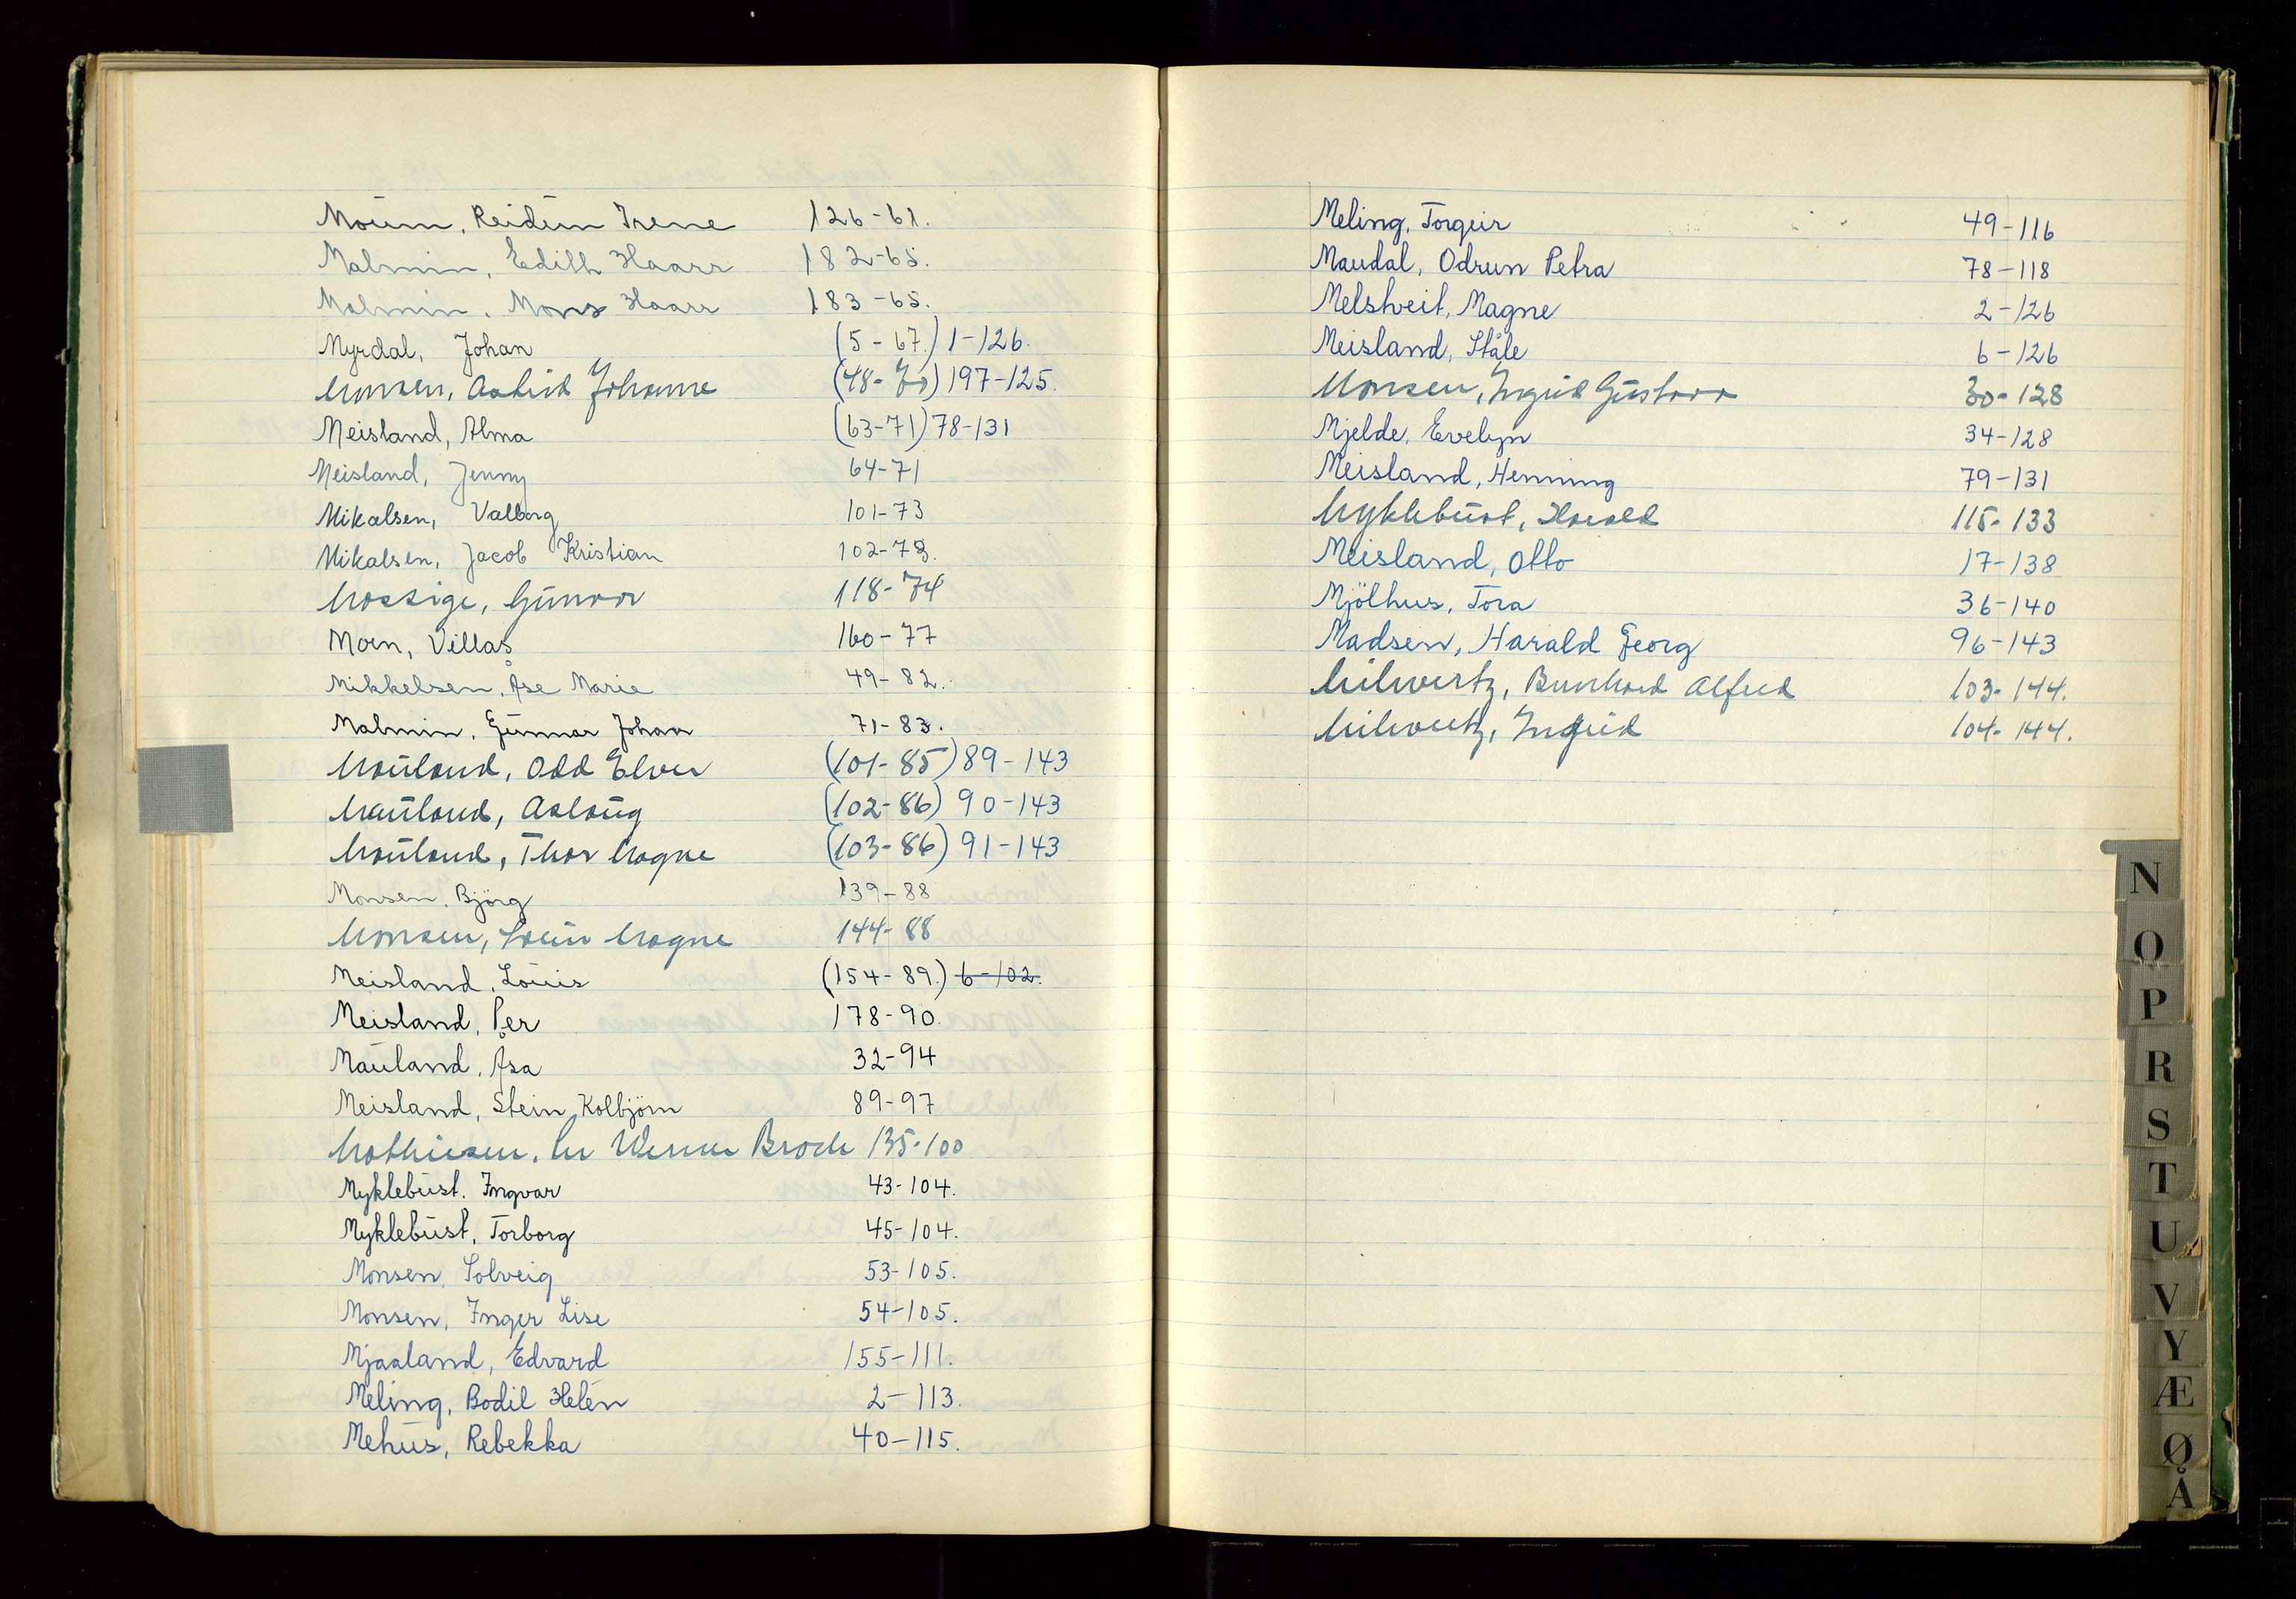 Moum, Reidun Irene 126-61.
Malmin, Edith Haarr 182-65.
Malmin, Mons Haarr 183-65.
Myrdal, Johan (5-67.) 1-126.
Monsen, Astrid Johanne (48-70) 197-125.
Meisland, Alma (63-71) 78-131
Meisland, Jenny 64-71
Mikalsen, Valborg 101-73
Mikalsen, Jacob Kristian 102-73.
Mossige, Gunvor 118-74
Moen, Villas 160-77
Mikkelsen, Åse Marie 49-82.
Malmin, Gunnar Johan 71-83.
Mauland, Odd Elver (101-85) 89-143
Mauland, Aslaug (102-86) 90-143
Mauland, Thor Magne (103-86) 91-143
Monsen, Bjørg 139-88
Monsen, Svein Magne 144-88
Meisland, Louis (154-89.) 6-102.
Meisland, Per 178-90.
Mauland, Åsa 32-94
Meisland, Stein Kolbjörn 89-97
Mathiesen, Werner Broch 135-100
Myklebust, Ingvar 43-104.
Myklebust, Torborg 45-104.
Monsen, Solveig 53-105.
Monsen, Inger Lise 54-105.
Mjaaland, Edvard 155-111.
Meling, Bodil Helén 2-113.
Mehus, Rebekka 40-115.
Meling, Torgeir 49-116
Maudal, Odrun Petra 78-118
Melstveit, Magne 2-126
Meisland, Ståle 6-126
Monsen, Ingrid Gustava 30-128
Mjelde, Evelyn 34-128
Meisland, Henning 79-131
Myklebust, Harald 115-133
Meisland, Otto 17-138
Mjölhus, Tora 36-140
Madsen, Harald Georg 96-143
Milvertz, Bernhard Alfred 103-144.
Milvertz, Ingrid 104-144.
N
O
P
R
S
T
U
V
Y
Æ
Ø
Å